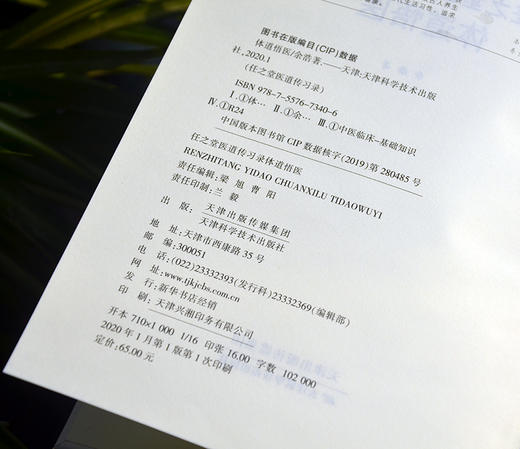 图书在版编目(CIP)数据
体道悟医/余浩著.——天津:天津科学技术出版
社,2020.1
(任之堂医道传习录)
ISBN 978-7-5576-7340-6
Ⅰ.①体… Ⅱ.①余… Ⅲ.①中医临床-基础知识
Ⅳ.①R24
中国版本图书馆CIP数据核字(2019)第280485号
任之堂医道传习录体道悟医
RENZHITANG YIDAO CHUANXILU TIDAOWUYI
责任编辑:梁旭 曹阳
责任印制:兰毅
出 版: 天津出版传媒集团
天津科学技术出版社
地 址:天津市西康路35号
邮 编:300051
电 话:(022)23332393(发行科)23332369(编辑部)
网 址:www.tjkjcbs.com.cn
发 行:新华书店经销
印 刷:天津兴湘印务有限公司
开本 710×1 000 1/16 印张 16.00 字数 102 000
2020年1月第1版第1次印刷
定价:65.00元